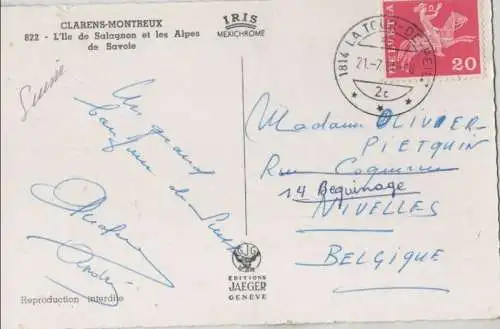 CLARENS-MONTREUX
822 - L'Ile de Salagnon et les Alpes
de Savoie
IRIS
MEXICHROME
1814 LA TOUR-DE-PEILZ
21.-7.
2c
HELVETIA
20
Suisse
Un grand
bonjour de Suisse
André
Madame OLIVIER-
PIETQUIN
Rue
14 Beguinage
NIVELLES
BELGIQUE
EDITIONS
JAEGER
GENÈVE
Reproduction interdite